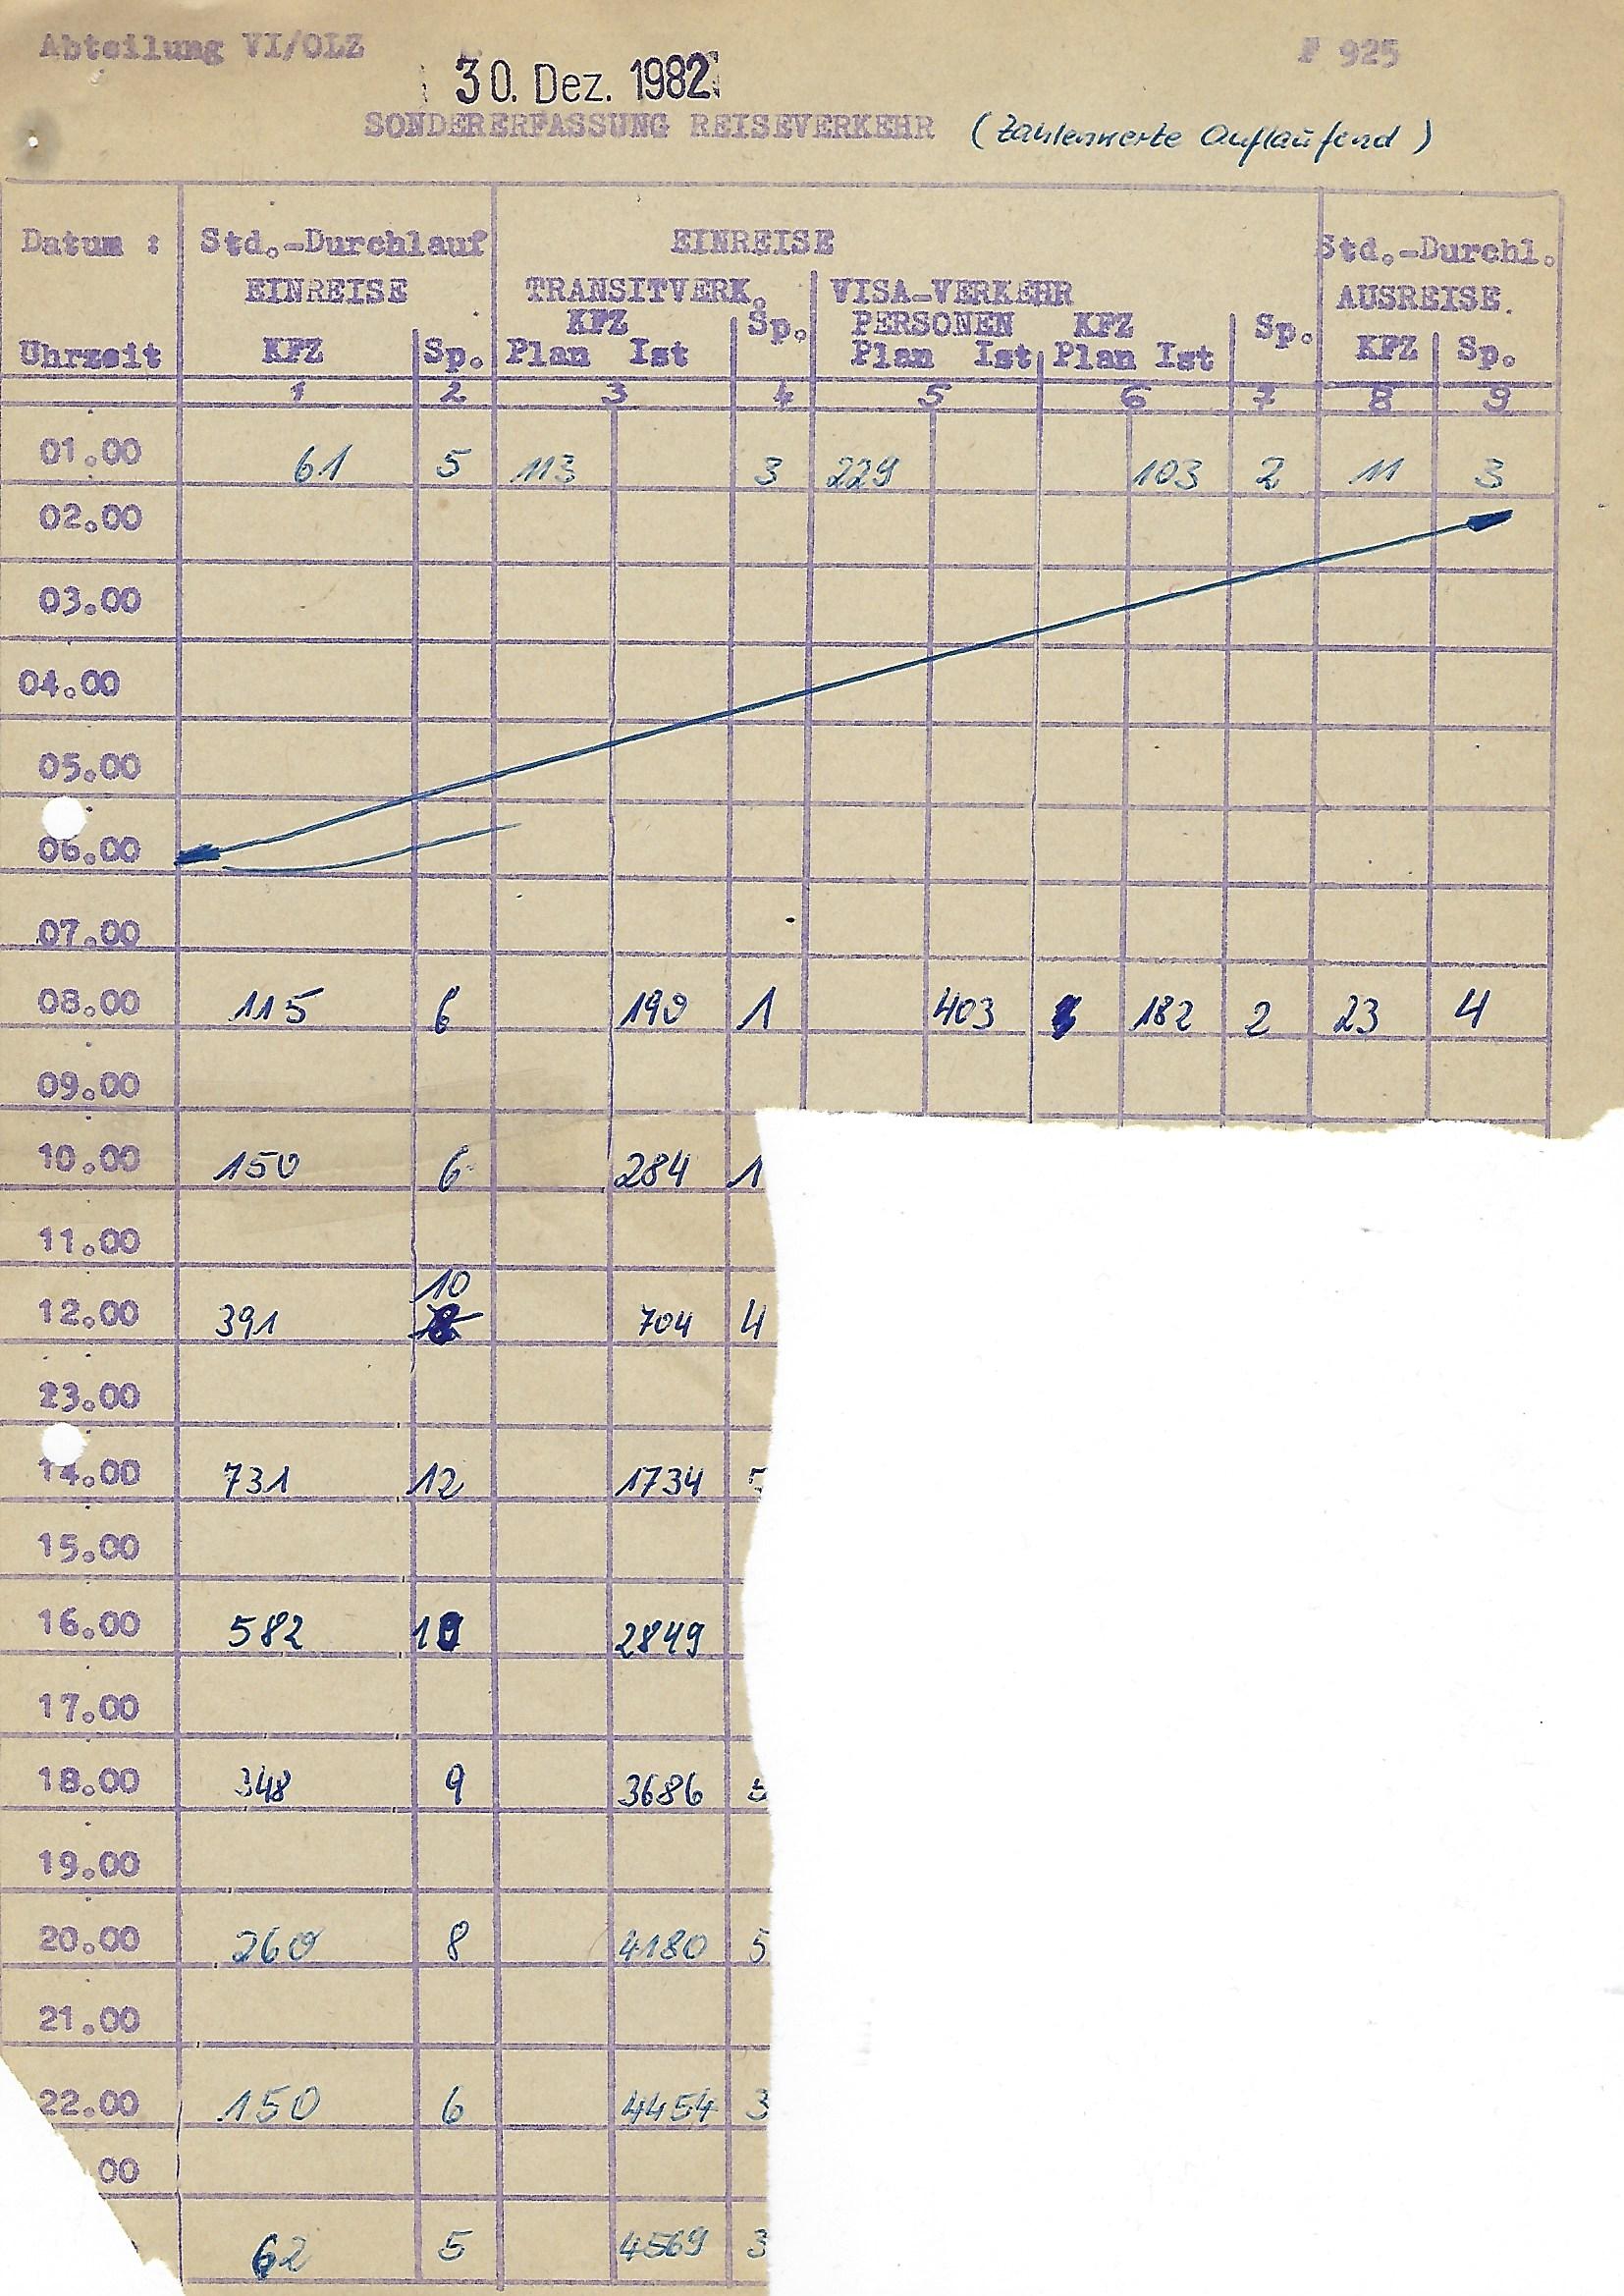 Abteilung VI/OLZ
F 925
30. Dez. 1982
SONDERERFASSUNG REISEVERKEHR (Zahlenwerte Auflaufend)
Datum : Std.-Durchlauf EINREISE Std.-Durchl.
EINREISE TRANSITVERK. VISA-VERKEHR AUSREISE.
KFZ Sp. PERSONEN KFZ Sp.
Uhrzeit KFZ Sp. Plan Ist Plan Ist Plan Ist KFZ Sp.
1 2 3 4 5 6 7 8 9
01.00 61 5 113 3 229 103 2 11 3
02.00
03.00
04.00
05.00
06.00
07.00
08.00 115 6 190 1 403 182 2 23 4
09.00
10.00 150 6 284 1
11.00
10
12.00 391 704 4
23.00
14.00 731 12 1734 5
15.00
16.00 582 10 2849
17.00
18.00 348 9 3686 5
19.00
20.00 260 8 4180 5
21.00
22.00 150 6 4454 3
00
62 5 4569 3